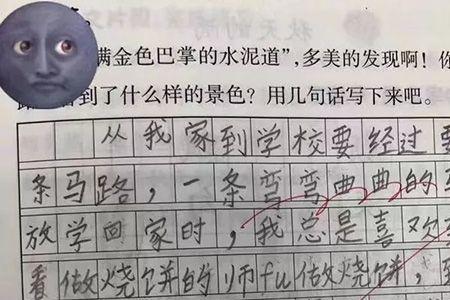 满金色巴掌的水泥道”,多美的发现啊!你
到了什么样的景色?用几句话写下来吧。
从我家到学校要经过
条马路,一条弯弯曲曲的
放学回家时,我总是喜欢
看做烧饼的师fu做烧饼,